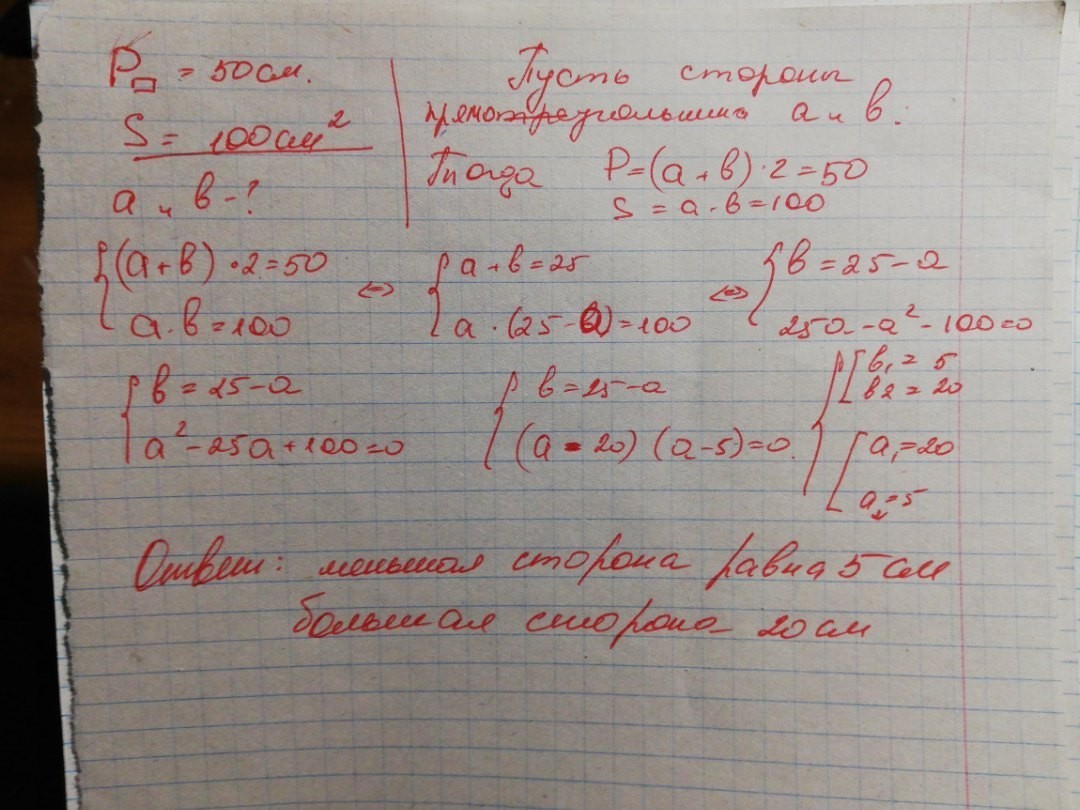 P▭ = 50 см.
S = 100 см²
a и в - ?
Пусть стороны
прямоугольника a и в.
Тогда P=(a+в)·2=50
S = a·в=100
{(a+в)·2=50 <=> {a+в=25 <=> {в=25-a
a·в=100 a·(25-a)=100 25a-a²-100=0
{в=25-a {в=25-a {[в₁=5
в2=20
a²-25a+100=0 (a-20)(a-5)=0. [a₁=20
a₂=5
Ответ: меньшая сторона равна 5 см
большая сторона 20 см